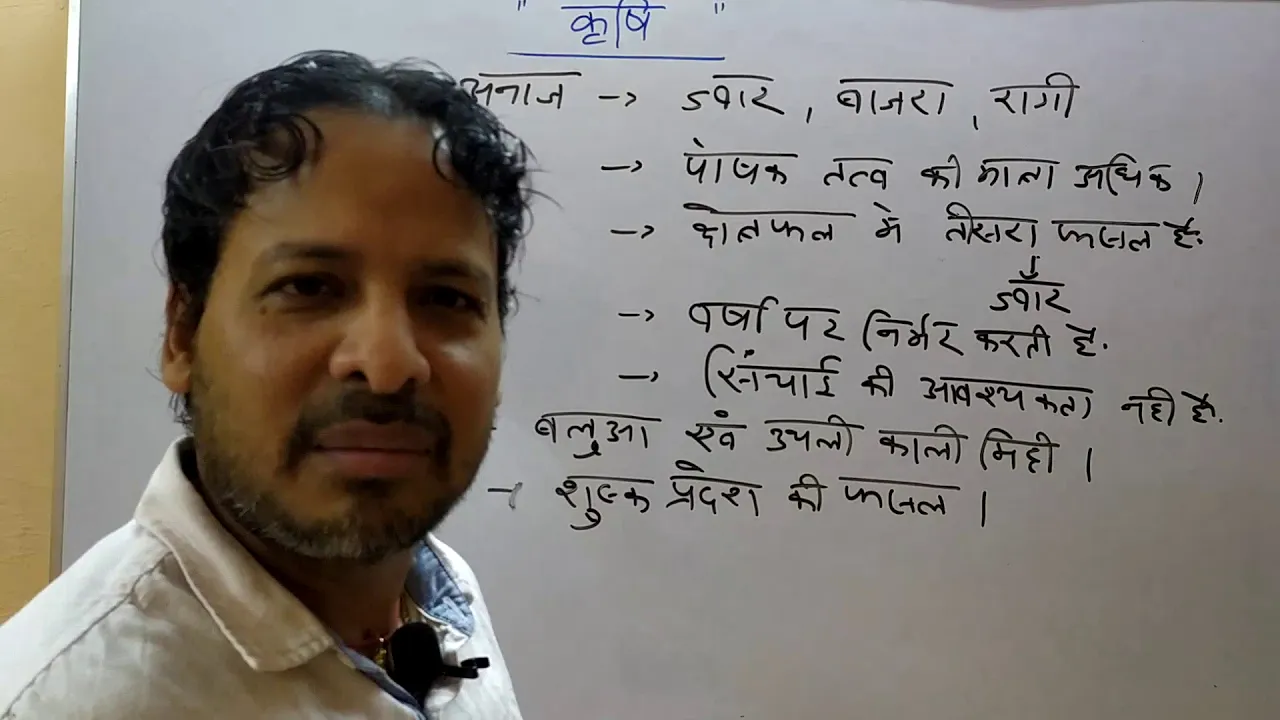 " कृषि "
अनाज -> ज्वार, बाजरा, रागी
-> पोषक तत्व की मात्रा अधिक।
-> क्षेत्रफल में तीसरा फसल है.
↓
ज्वार
-> वर्षा पर निर्भर करती है.
-> सिंचाई की आवश्यकता नही है.
बलुआ एवं उथली काली मिट्टी।
- शुष्क प्रदेश की फसल।